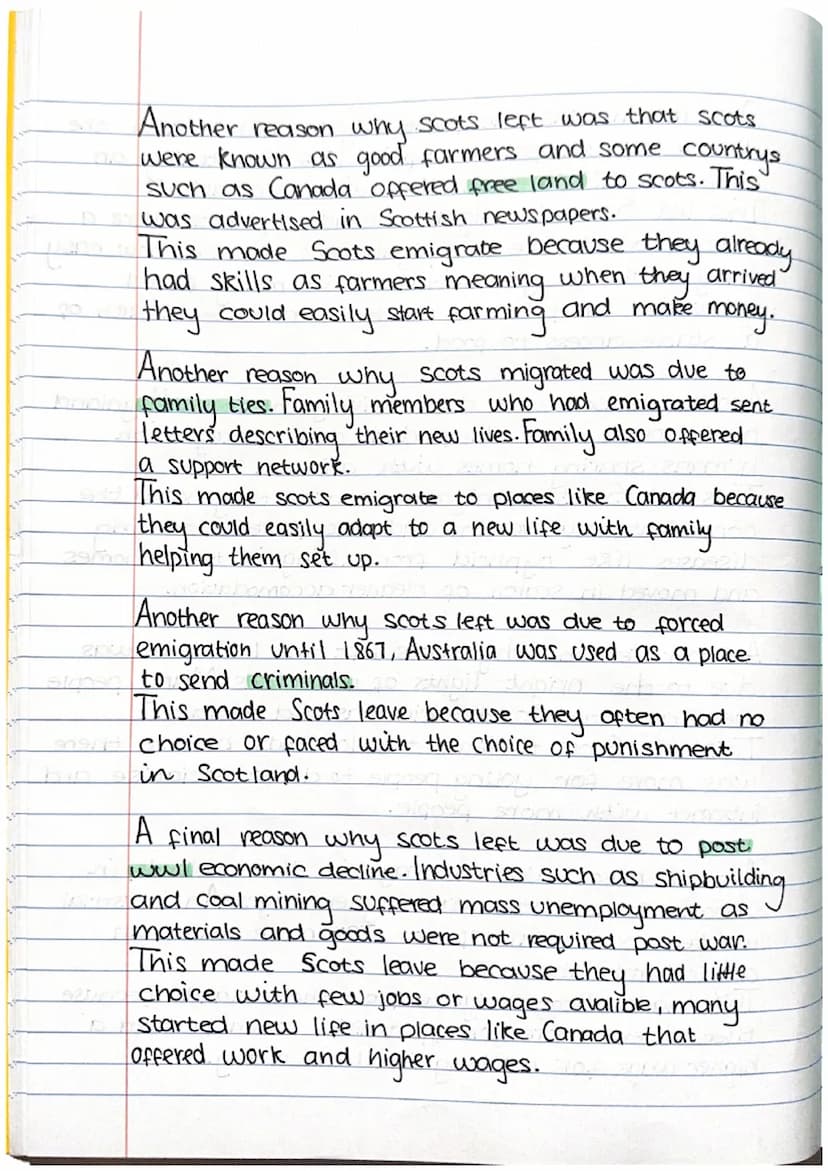 Another reason why scots left was that scots
were known as good farmers and some countrys
such as Canada offered free land to scots. This
was advertised in Scottish newspapers.
This made Scots emigrate because they already
had skills as farmers meaning when they arrived
they could easily start farming and make money.
Another reason why scots migrated was due to
family ties. Family members who had emigrated sent
letters describing their new lives. Family also offered
a support network.
This made scots emigrate to places like Canada because
they could easily adapt to a new life with family
helping them set up.
Another reason why scots left was due to forced
emigration until 1867, Australia was used as a place
to send criminals.
This made Scots leave because they often had no
choice or faced with the choice of punishment
in Scotland.
A final reason why scots left was due to post
ww1 economic decline. Industries such as shipbuilding
and coal mining suffered mass unemployment as
materials and goods were not required post war.
This made Scots leave because they had little
choice with few jobs or wages avalible, many
started new life in places like Canada that
offered work and higher wages.